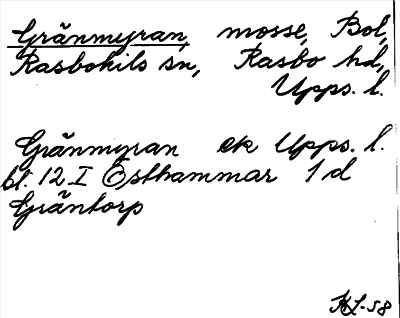 Gränmyran, mosse, Bol,
Rasbokils sn, Rasbo hd,
Upps. l.
Gränmyran ek Upps. l.
bl. 12 I Östhammar 1 d
Gräntorp
HS-58